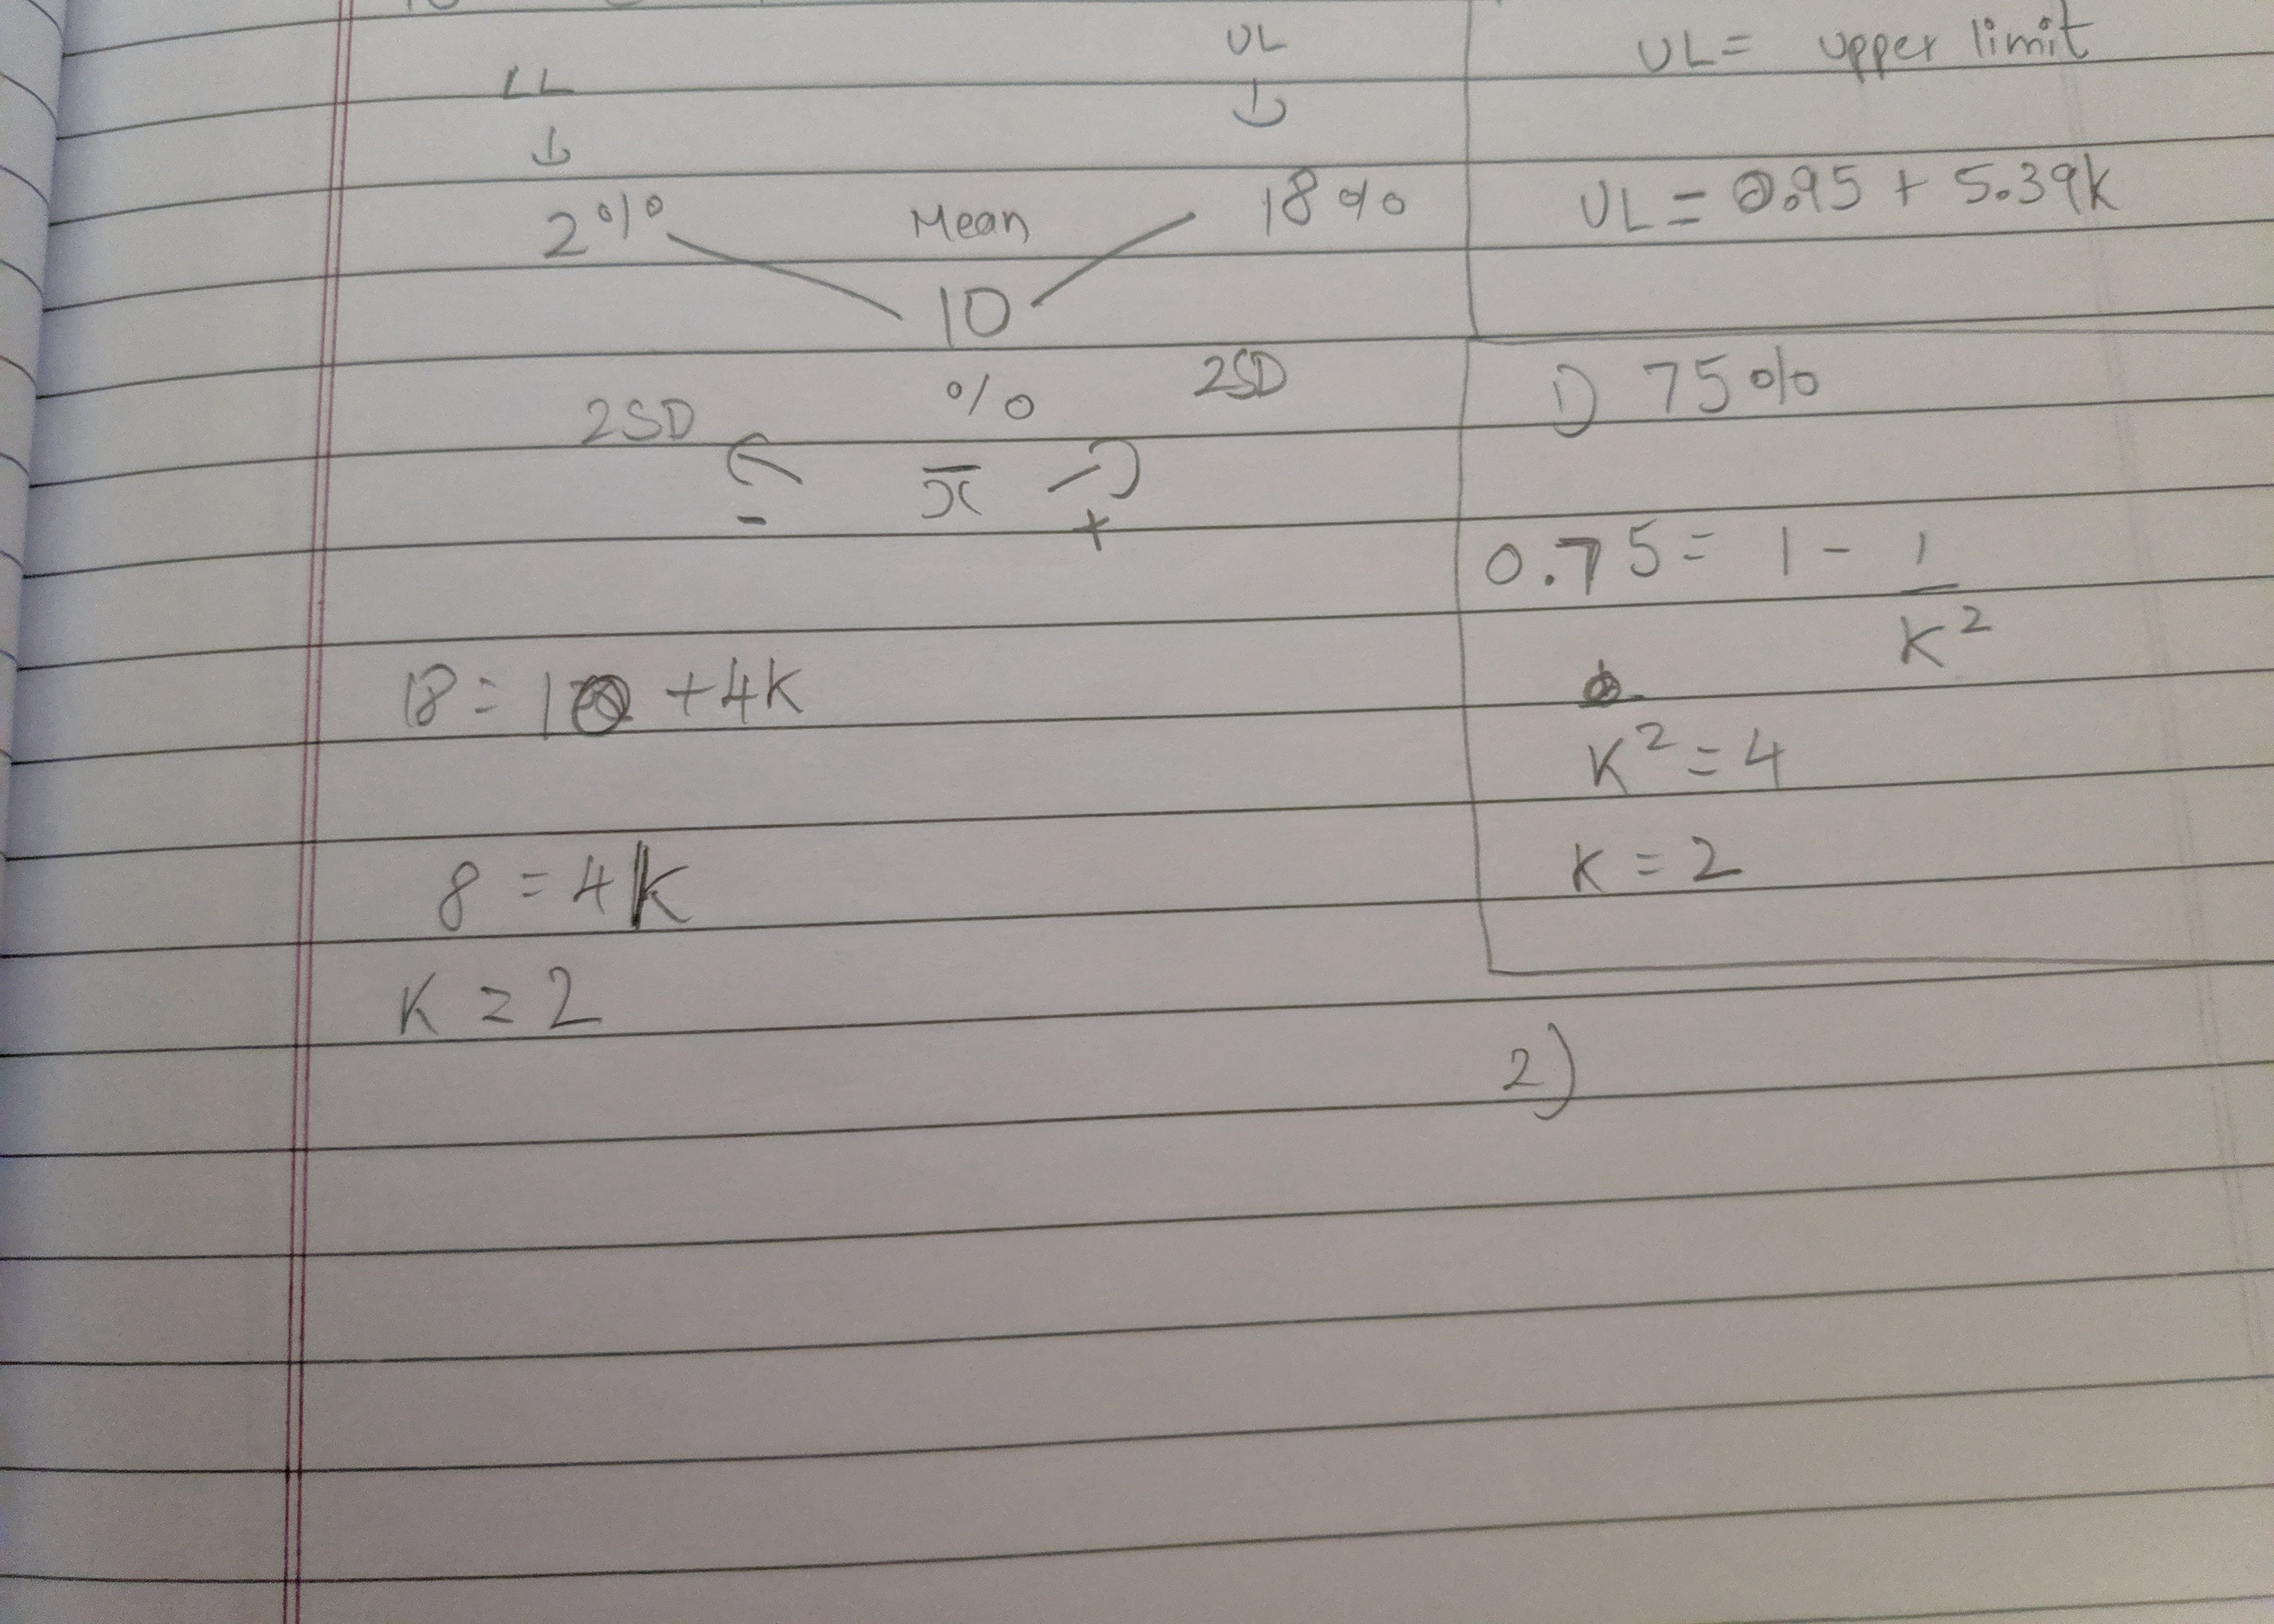 LL
↓
2%
UL
↓
18%
Mean
10
%
2SD
2SD
x̄
-
+
18 = 10 + 4k
8 = 4k
K = 2
UL = upper limit
UL = 0.95 + 5.39k
1) 75%
0.75 = 1 - 1/K²
K² = 4
K = 2
2)